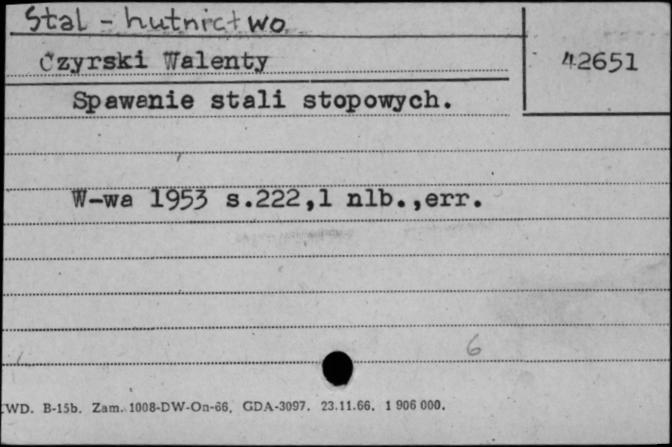 Stal - hutnictwo
Czyrski Walenty
42651
Spawanie stali stopowych.
W-wa 1953 s.222,1 nlb.,err.
6
WD. B-15b. Zam. 1008-DW-On-66. GDA-3097. 23.11.66. 1 906 000.